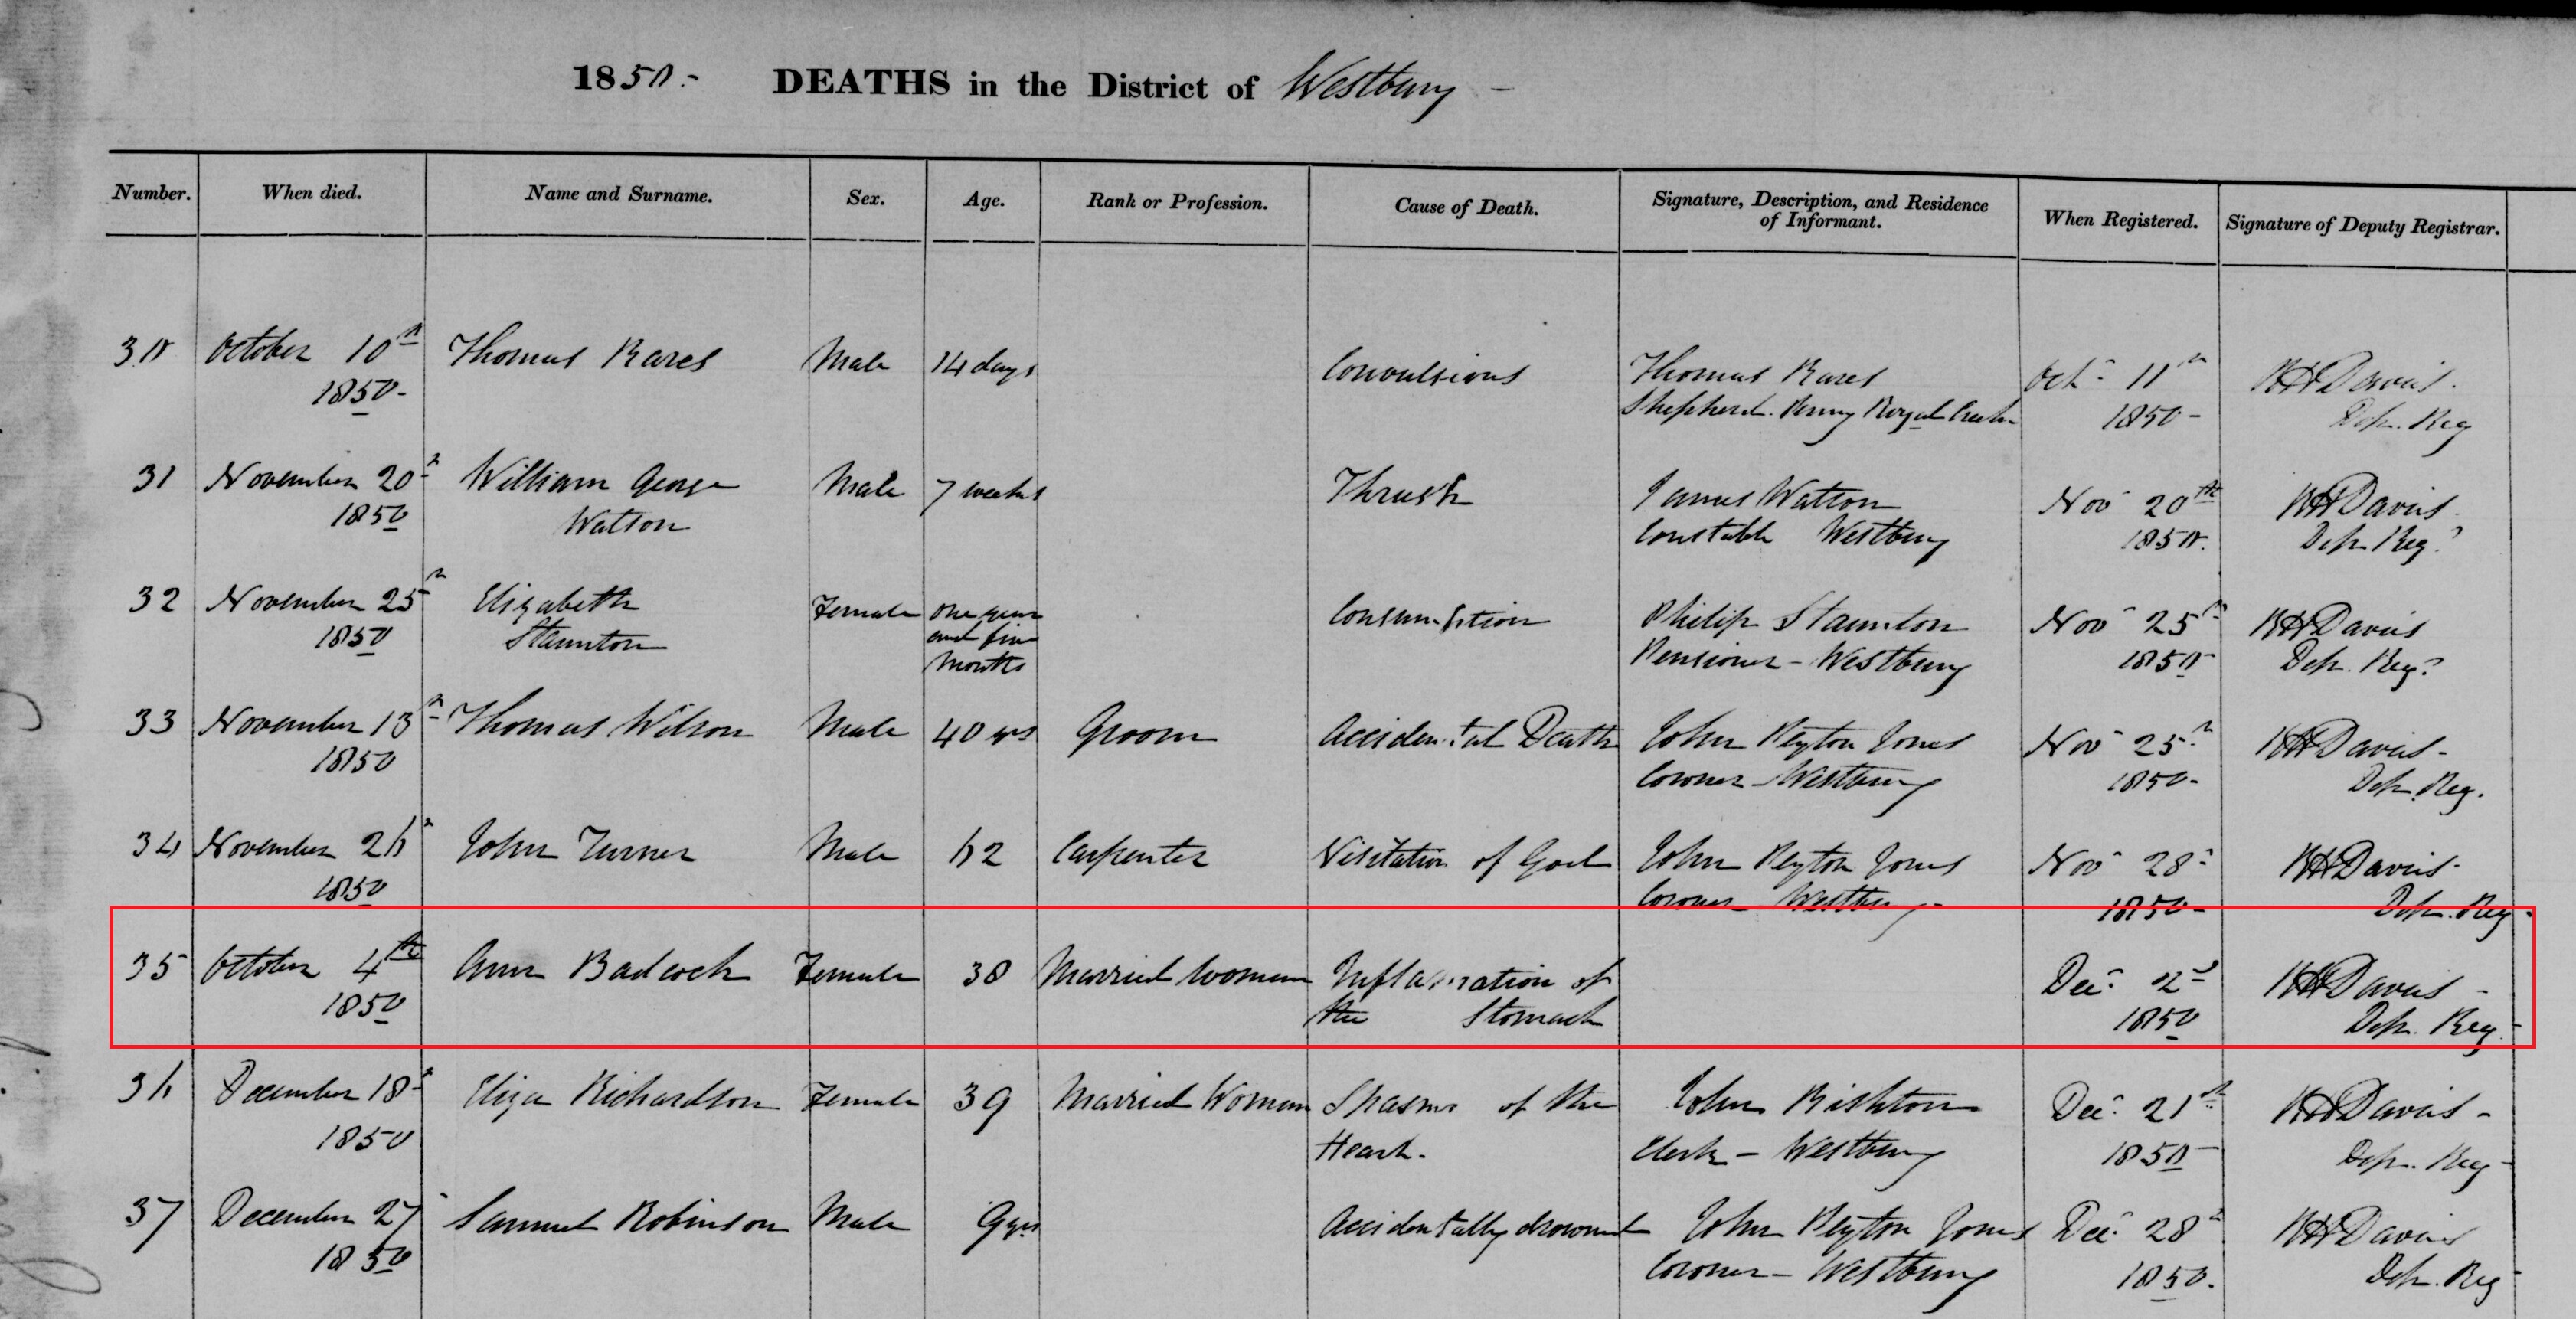 1850.- DEATHS in the District of Westbury -
Number. When died. Name and Surname. Sex. Age. Rank or Profession. Cause of Death. Signature, Description, and Residence of Informant. When Registered. Signature of Deputy Registrar.
30 October 10th Thomas Bares Male 14 days Convulsions Thomas Bares Oct 11th RHDavis.
1850- Shepherd. Penny Royal Creek 1850- Dep. Reg
31 November 20th William George Male 7 weeks Thrush James Watson Nov 20th RHDavis
1850 Watson Constable Westbury 1850. Dep Reg.
32 November 25th Elizabeth Female One year Consumption Philip Staunton Nov 25th RHDavis
1850 Staunton and five Pensioner - Westbury 1850 Dep. Reg.
Months
33 November 13th Thomas Wilson Male 40 yrs Groom Accidental Death John Peyton Jones Nov 25th RHDavis -
1850 Coroner - Westbury 1850- Dep. Reg.
34 November 26th John Turner Male 62 Carpenter Visitation of God John Peyton Jones Nov 28th RHDavis-
1850 Coroner - Westbury - 1850- Dep. Reg.
35 October 4th Ann Badcock Female 38 Married Woman Inflamation of Dec. 2d RHDavis -
1850 the Stomach 1850 Dep. Reg.
36 December 18th Eliza Richardson Female 39 Married Woman Spasms of the John Rishton Dec. 21st RHDavis -
1850 Heart. Clerk - Westbury 1850- Dep. Reg-
37 December 27 Samuel Robinson Male 9 yrs Accidentally drowned John Peyton Jones Dec. 28th RHDavis
1850 Coroner - Westbury 1850. Dep. Reg